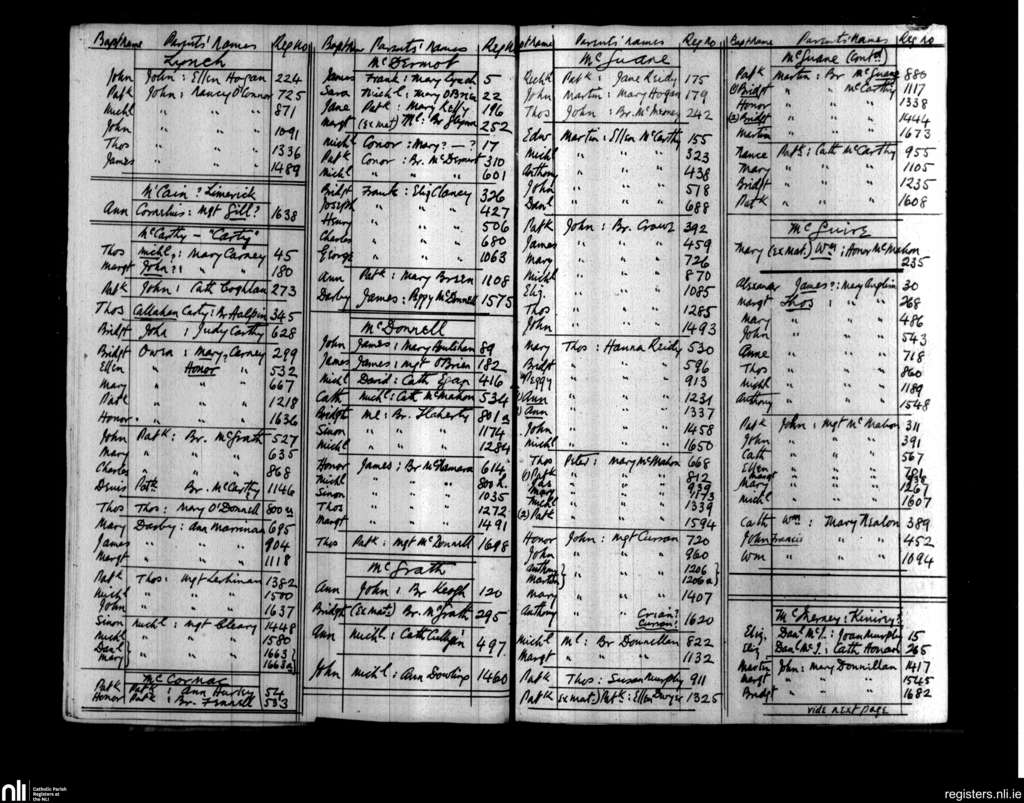 Bapt name Parents' names Reg No
Lynch
John John : Ellen Hogan 224
Patk John : Nancy O'Connor 725
Michl " " " 871
John " " " 1091
Thos " " " 1336
James " " " 1489
McCain ? Limerick
Ann Cornelius : Mgt Gill? 1638
McCarthy - "Carty"
Thos Michl : Mary Carney 45
Margt John? : " " 180
Patk John : Cath Coghlan 273
Thos Callahan Carty : Br Halpin 345
Bridgt John : Judy Carthy 628
Bridgt Owen : Mary Carney 299
Ellen " Honor " 532
Mary " " " 667
Patk " " " 1218
Honor " " " 1636
John Patk : Br. McGrath 527
Mary " " " 635
Charles " " " 868
Denis Patk Br. McCarthy 1146
Thos Thos : Mary O'Donnell 800a
Mary Darby : Ann Marrinan 695
James " " " 904
Margt " " " 1118
Patk Thos : Mgt Leshinan 1382
Michl " " " 1500
John " " " 1637
Sinon Michl : Mgt Cleary 1448
Michl " " " 1580
Danl } " " " 1663 }
Mary } 1663a }
McCormac
Patk Patk : Ann Harley 54
Honor Patk : Br. Fennell 553
Bapt name Parents' names Reg No
McDermot
James Frank : Mary Lynch 5
Sara Michl : Mary O'Brien 22
Jane Patk : Mary Kelly 196
Margt (ex mat) Ml : Br Glynn 252
Michl Conor : Mary ? — ? 17
Patk Conor : Br. McDermot 310
Michl " " " 601
Bridgt Frank : Eliz Clancy 326
Joseph " " " 427
Henry " " " 506
Charles " " " 680
George " " " 1063
Ann Patk : Mary Brien 1108
Darby James : Peggy McDonnell 1575
McDonnell
John James : Mary Houlihan 89
James James : Mgt O'Brien 182
Michl David : Cath Egan 416
Cath Michl : Cath McMahon 534
Bridgt Ml : Br. Flaherty 801a
Sinon " " " 1174
Michl " " " 1284
Honor James : Br McNamara 614
Michl " " " 800h.
Sinon " " " 1035
Thos " " " 1272
Margt " " " 1491
Thos Patk : Mgt McDonnell 1698
McGrath
Ann John : Br Keogh 120
Bridgt (ex mat) Br. McGrath 295
Ann Michl : Cath 497
John Michl : Ann Dowling 1460
Bapt name Parents' names Reg no
McGuane
Patk : Jane Reidy 175
John Martin : Mary Hogan 179
Thos John : Br. McInerney 242
Edw Martin : Ellen McCarthy 155
Michl " " " 323
Anthony " " " 438
John " " " 518
Danl " " " 688
Patk John : Br. Crowe 392
James " " " 459
Mary " " " 726
Michl " " " 870
Eliz. " " " 1085
Thos " " " 1285
John " " " 1493
Mary Thos : Hanna Reidy 530
Bridgt " " " 596
Peggy " " " 913
Ann " " " 1231
Ann " " " 1337
John " " " 1458
Michl " " " 1650
Thos Peter : Mary McMahon 668
(1) Patk " " " 812
Jas " " " 939
Mary " " " 1173
Michl " " " 1339
(2) Patk " " " 1594
Honor John : Mgt Curran 720
John " " " 960
Anthony } " " " 1206 }
Martin } 1206a }
Mary " " " 1407
Anthony " " Crean? Curran? 1620
Michl Ml : Br Donnellan 822
Margt " " " 1132
Patk Thos : Susan Murphy 911
Patk (ex mat) Patk : Ellen Dwyer 1325
Bapt name Parents' Names Reg no
McGuane (Contd)
Patk Martin : Br McGuane 880
(1) Bridgt " " McCarthy 1117
Honor " " " 1338
(2) Bridgt " " " 1444
Martin " " " 1673
Nance Patk : Cath McCarthy 955
Mary " " " 1105
Bridgt " " " 1235
Patk " " " 1608
McGuire
Mary (ex mat.) Wm : Honor McMahon 235
James? : Mary Anglin 30
Margt Thos : " " 268
Mary " " " 486
John " " " 543
Anne " " " 718
Thos " " " 860
Michl " " " 1189
Anthony " " " 1548
Patk John : Mgt McMahon 311
John " " " 391
Cath " " " 567
Ellen " " " 781
Margt " " "
Mary " " " 1267
Michl " " " 1607
Cath Wm : Mary Nealon 389
John Francis " " " 452
Wm " " " 1094
McInerney : Kinirey?
Eliz. Danl McI. : Joan Murphy 15
Eliz Danl McI. : Cath Honan 265
Martin John : Mary Donnillan 1417
Margt " " " 1545
Bridgt " " " 1682
vide next page
nli Catholic Parish
Registers at
the NLI
registers.nli.ie